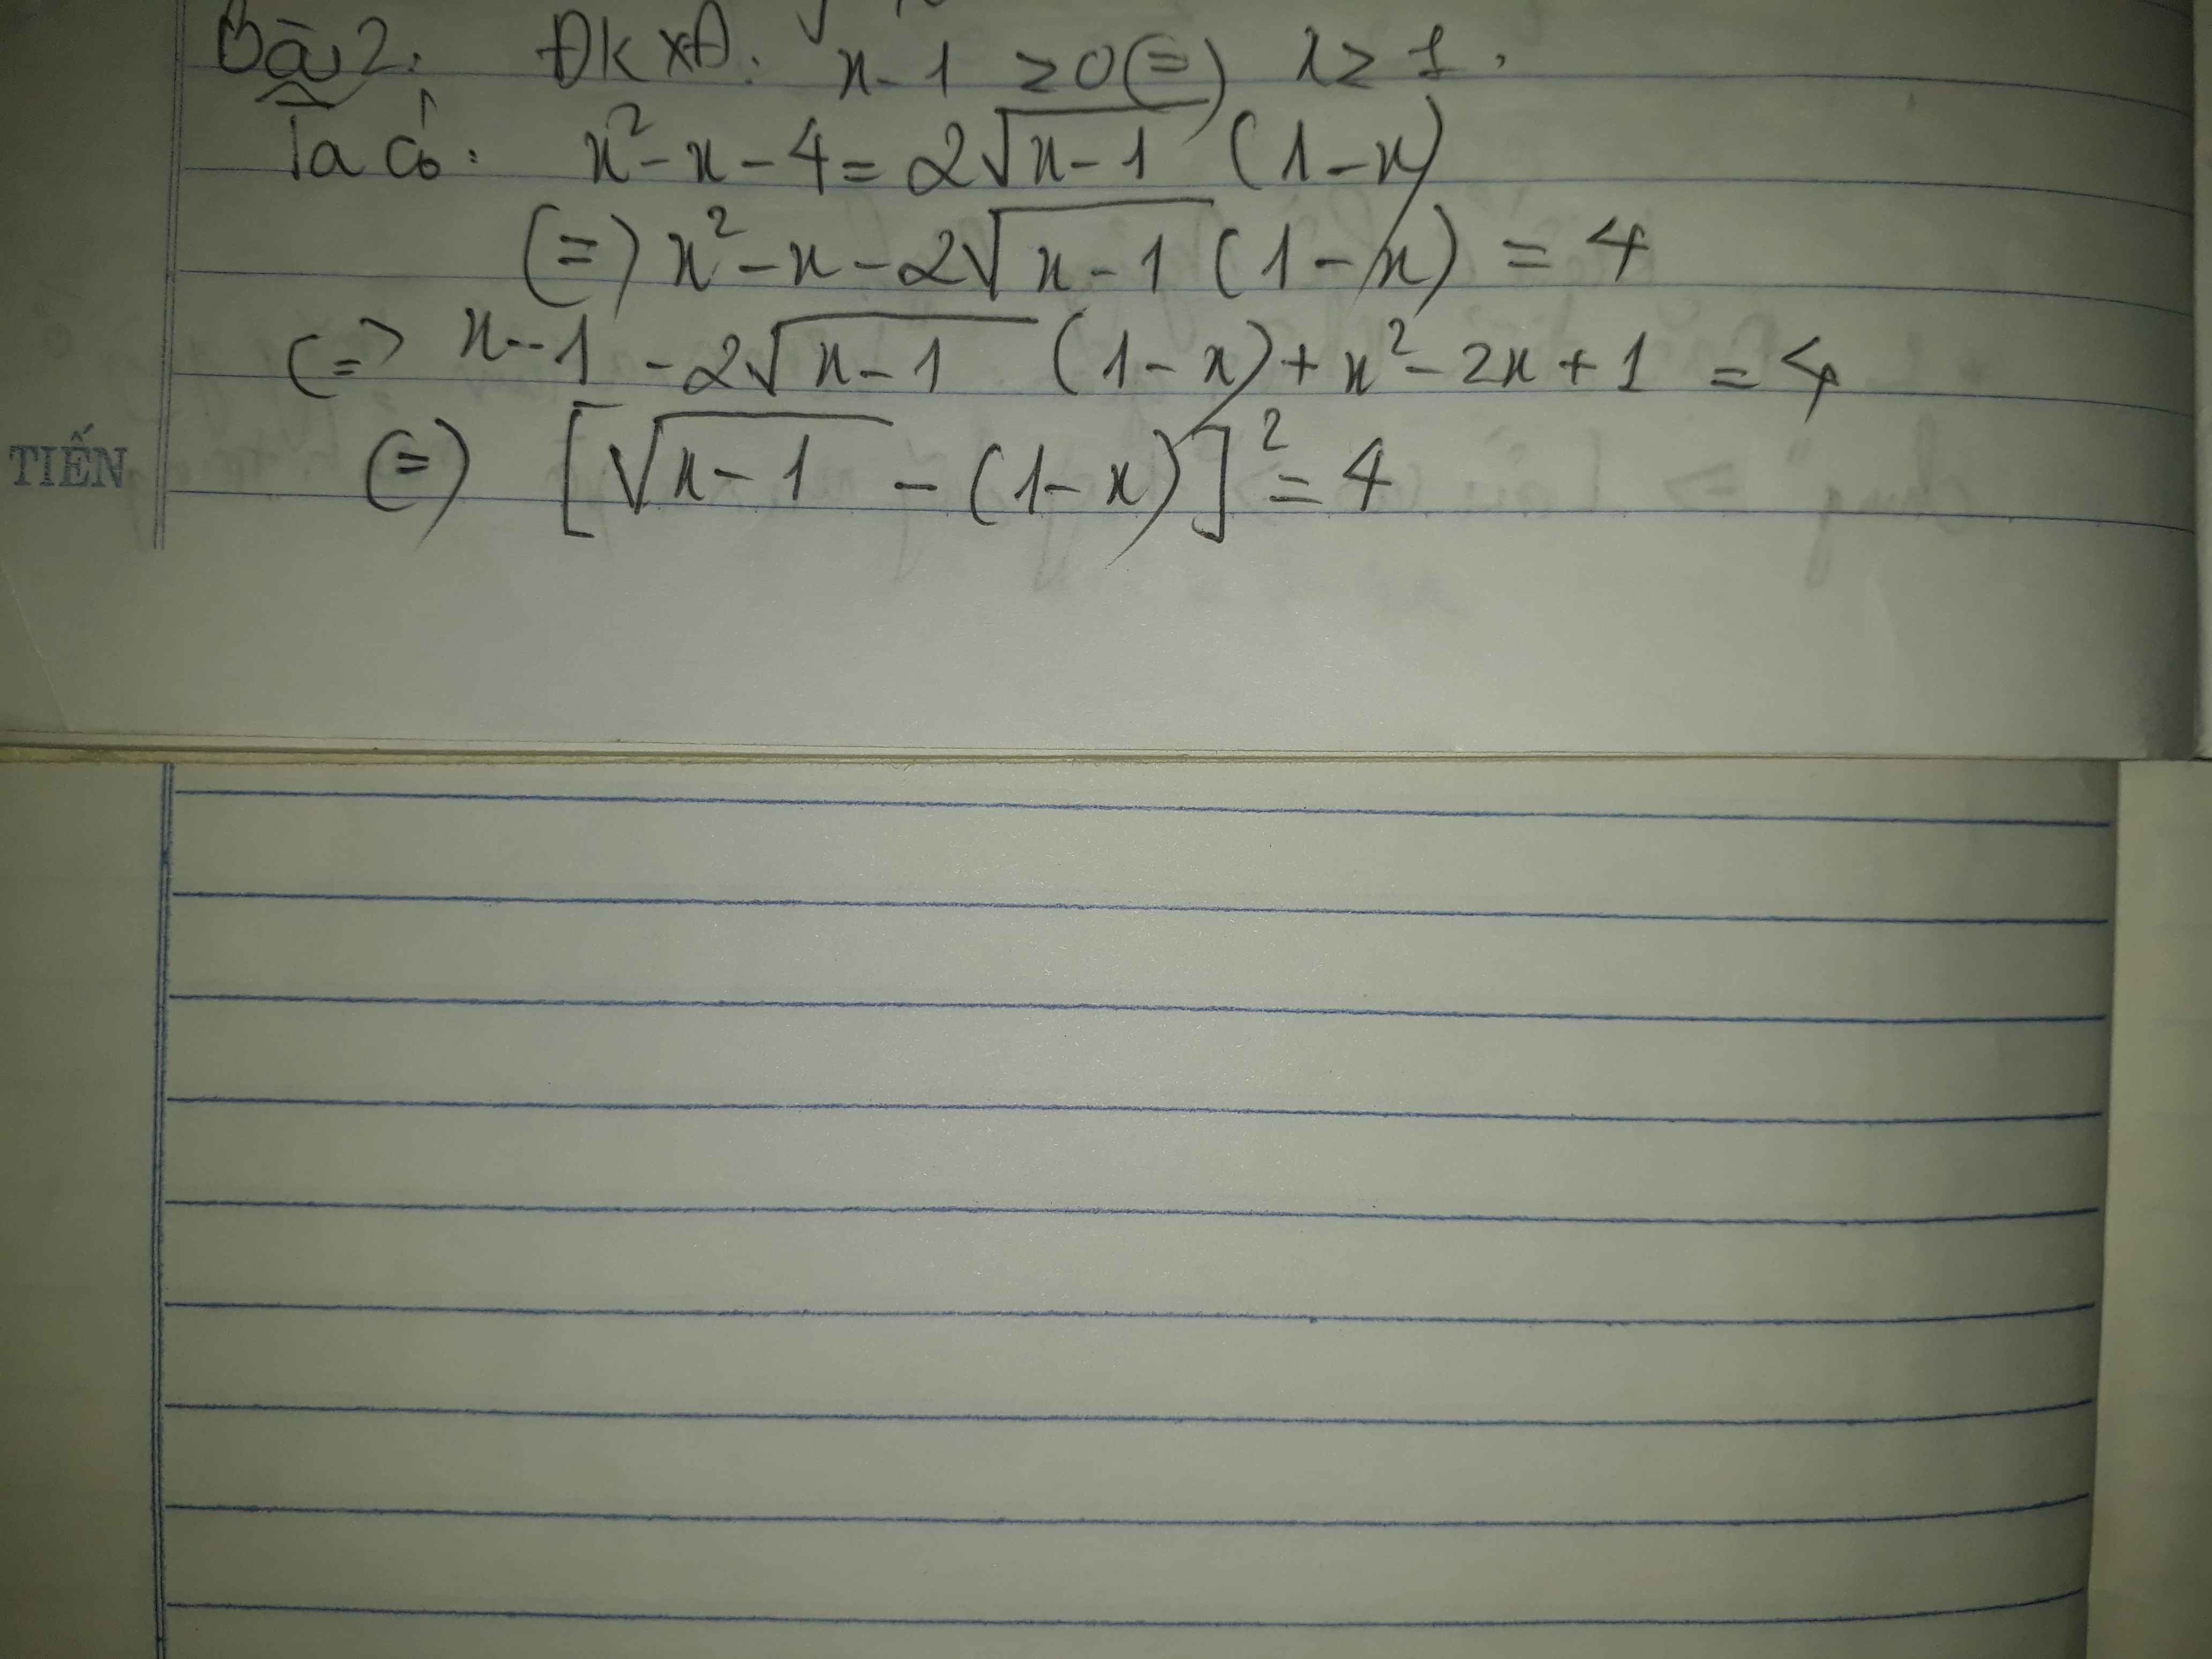 Bài 2: ĐKXĐ: x - 1 ≥ 0 (=) x ≥ 1.
Ta có: x² - x - 4 = 2√(x-1) (1-x)
(=) x² - x - 2√(x-1) (1-x) = 4
(=> x - 1 - 2√(x-1) (1-x) + x² - 2x + 1 = 4
(=) [√(x-1) - (1-x)]² = 4
TIẾN